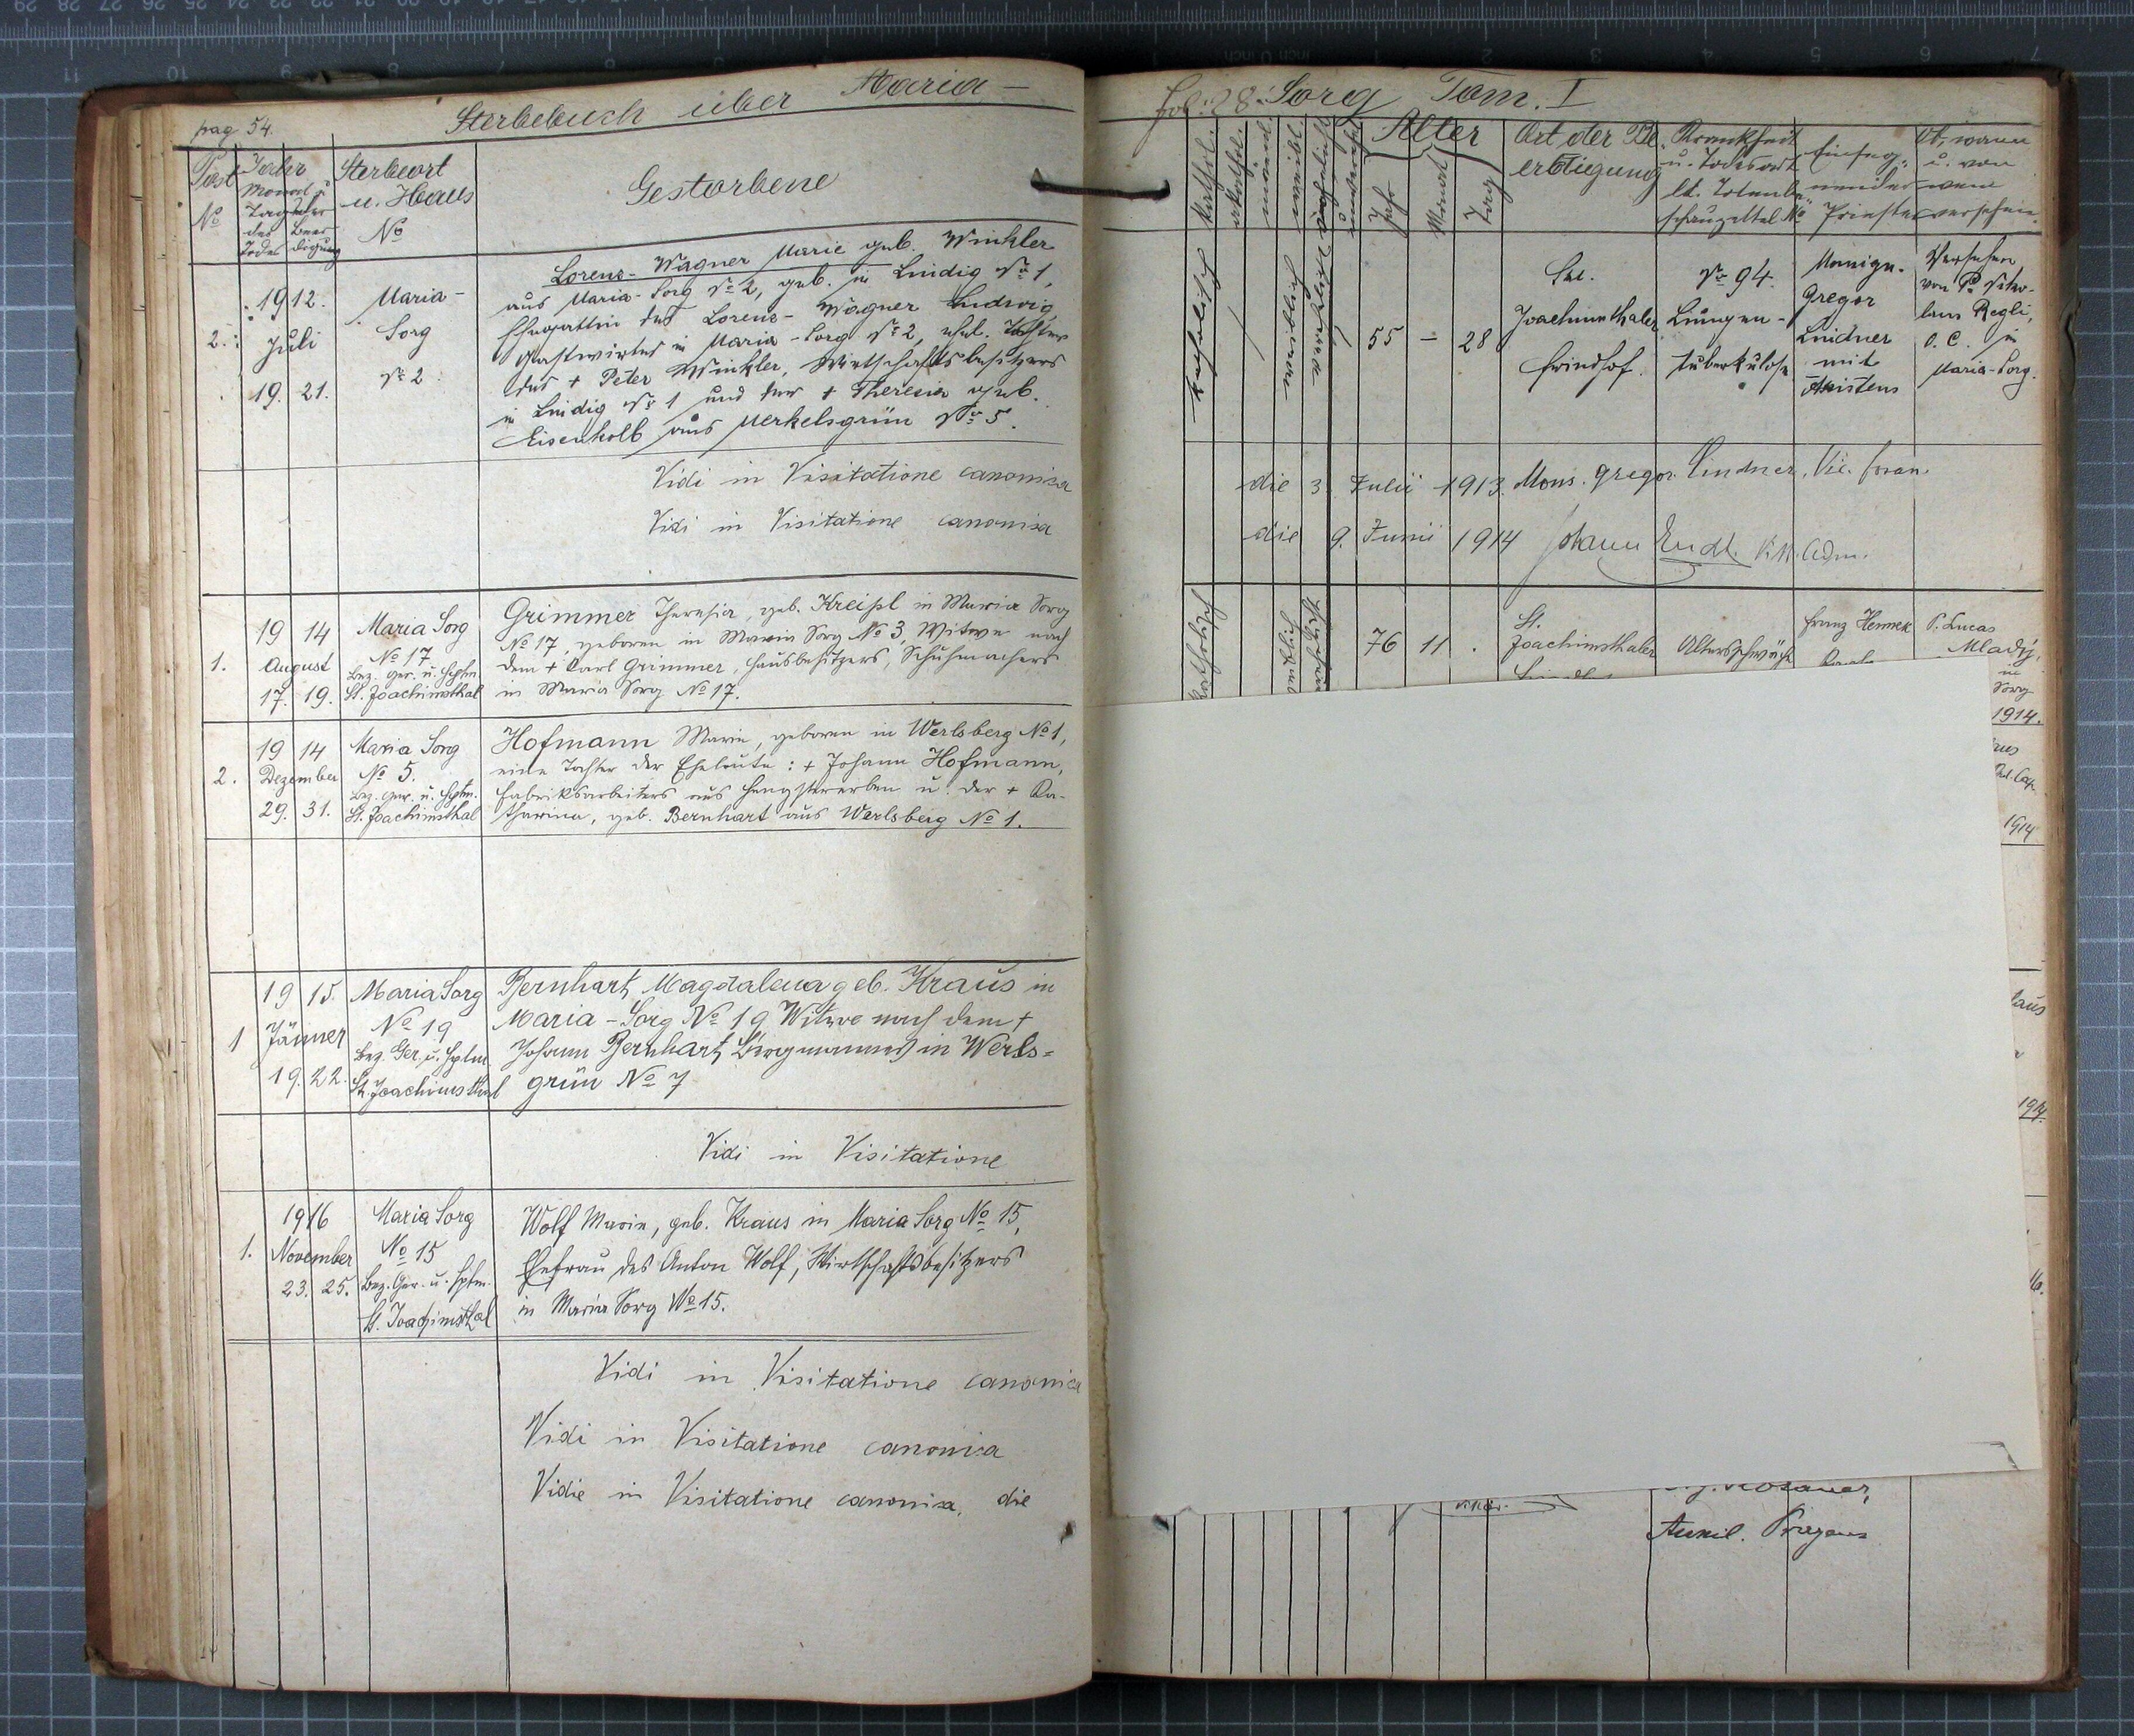 pag 54.
Sterbebuch über Maria-
Post
No
Jahr
Monat u
Tag
des Todes
Beerdigung
Sterbeort
u. Haus
No
Gestorbene
2.
1912.
Juli
19. 21.
Maria-
Sorg
No 2.
Lorenz-Wagner Marie geb. Winkler
aus Maria-Sorg No 2, geb. in Lindig No 1,
Ehegattin des Lorenz-Wagner Ludwig
Gastwirtes in Maria-Sorg No 2, ehel. Tochter
des + Peter Winkler, Wirtschaftsbesitzers
in Lindig No 1 und der + Theresia geb.
Eisenkolb aus Merkelsgrün No 5.
Vidi in Visitatione canonica
Vidi in Visitatione canonica
1.
19 14
August
17. 19.
Maria Sorg
No 17
Bez. Ger. u. Hptm.
St. Joachimsthal
Grimmer Theresia, geb. Kreißl in Maria Sorg
No 17, geboren in Maria Sorg No 3, Witwe nach
dem + Carl Grimmer, Hausbesitzers, Schuhmachers
in Maria Sorg No 17.
2.
19 14
Dezember
29. 31.
Maria Sorg
No 5.
Bez. Ger. u. Hptm.
St. Joachimsthal
Hofmann Marie, geboren in Werlsberg No 1,
eine Tochter der Eheleute: + Johann Hofmann,
Fabriksarbeiters aus Hengstererben u. der + Ka-
tharina, geb. Bernhart aus Werlsberg No 1.
1
19 15.
Jänner
19. 22.
Maria Sorg
No 19
Bez. Ger. u. Hptm
St. Joachimsthal
Bernhart Magdalena geb. Kraus in
Maria-Sorg No 19 Witwe nach dem +
Johann Bernhart, Bergmannes in Werls=
grün No 7
Vidi in Visitatione
1.
1916
November
23. 25.
Maria Sorg
No 15
Bez. Ger. u. Hptm.
St. Joachimsthal
Wolf Marie, geb. Kraus in Maria Sorg No 15,
Ehefrau des Anton Wolf, Wirtschaftsbesitzers
in Maria Sorg No 15.
Vidi in Visitatione canonica
Vidi in Visitatione canonica
Vidie in Visitatione canonica, die
fol. 28. Sorg Tom. I
Kathol.
akathol.
männl.
weibl.
ehelich
unehel.
Alter
Jahr
Monat
Tag
Art der Be-
erdigung
Krankheit
u. Todesart
lt. Totenbe-
schauzettel No
Einseg-
nender
Priester
Ob, wann
u. von
wem
versehen.
katholisch
weiblich
55 - 28
St.
Joachimsthaler
Friedhof.
No 94.
Lungen-
tuberkulose
Monsign.
Gregor
Lindner
mit
Assistenz
Versehen
von P.
Regli,
O.C. in
Maria-Sorg.
die 3. Julii 1913. Mons. Gregor. Lindner, Vic. foran.
die 9. Junii 1914 Johann Endt. Adm.
katholisch
76 11 .
St.
Joachimsthaler
Altersschwäche
Franz Hennek
P. Lucas
Mladý,
in
Sorg
1914.
Cap.
1914
1914.
Auxil. Pragens